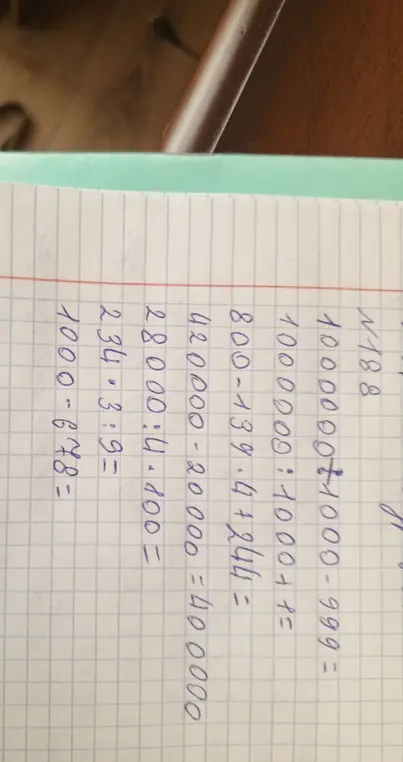 N188
1000000+1000-999=
1000000:1000+1=
800-139·4+244=
420000-20000=400000
28000:4·100=
234·3:9=
1000-678=